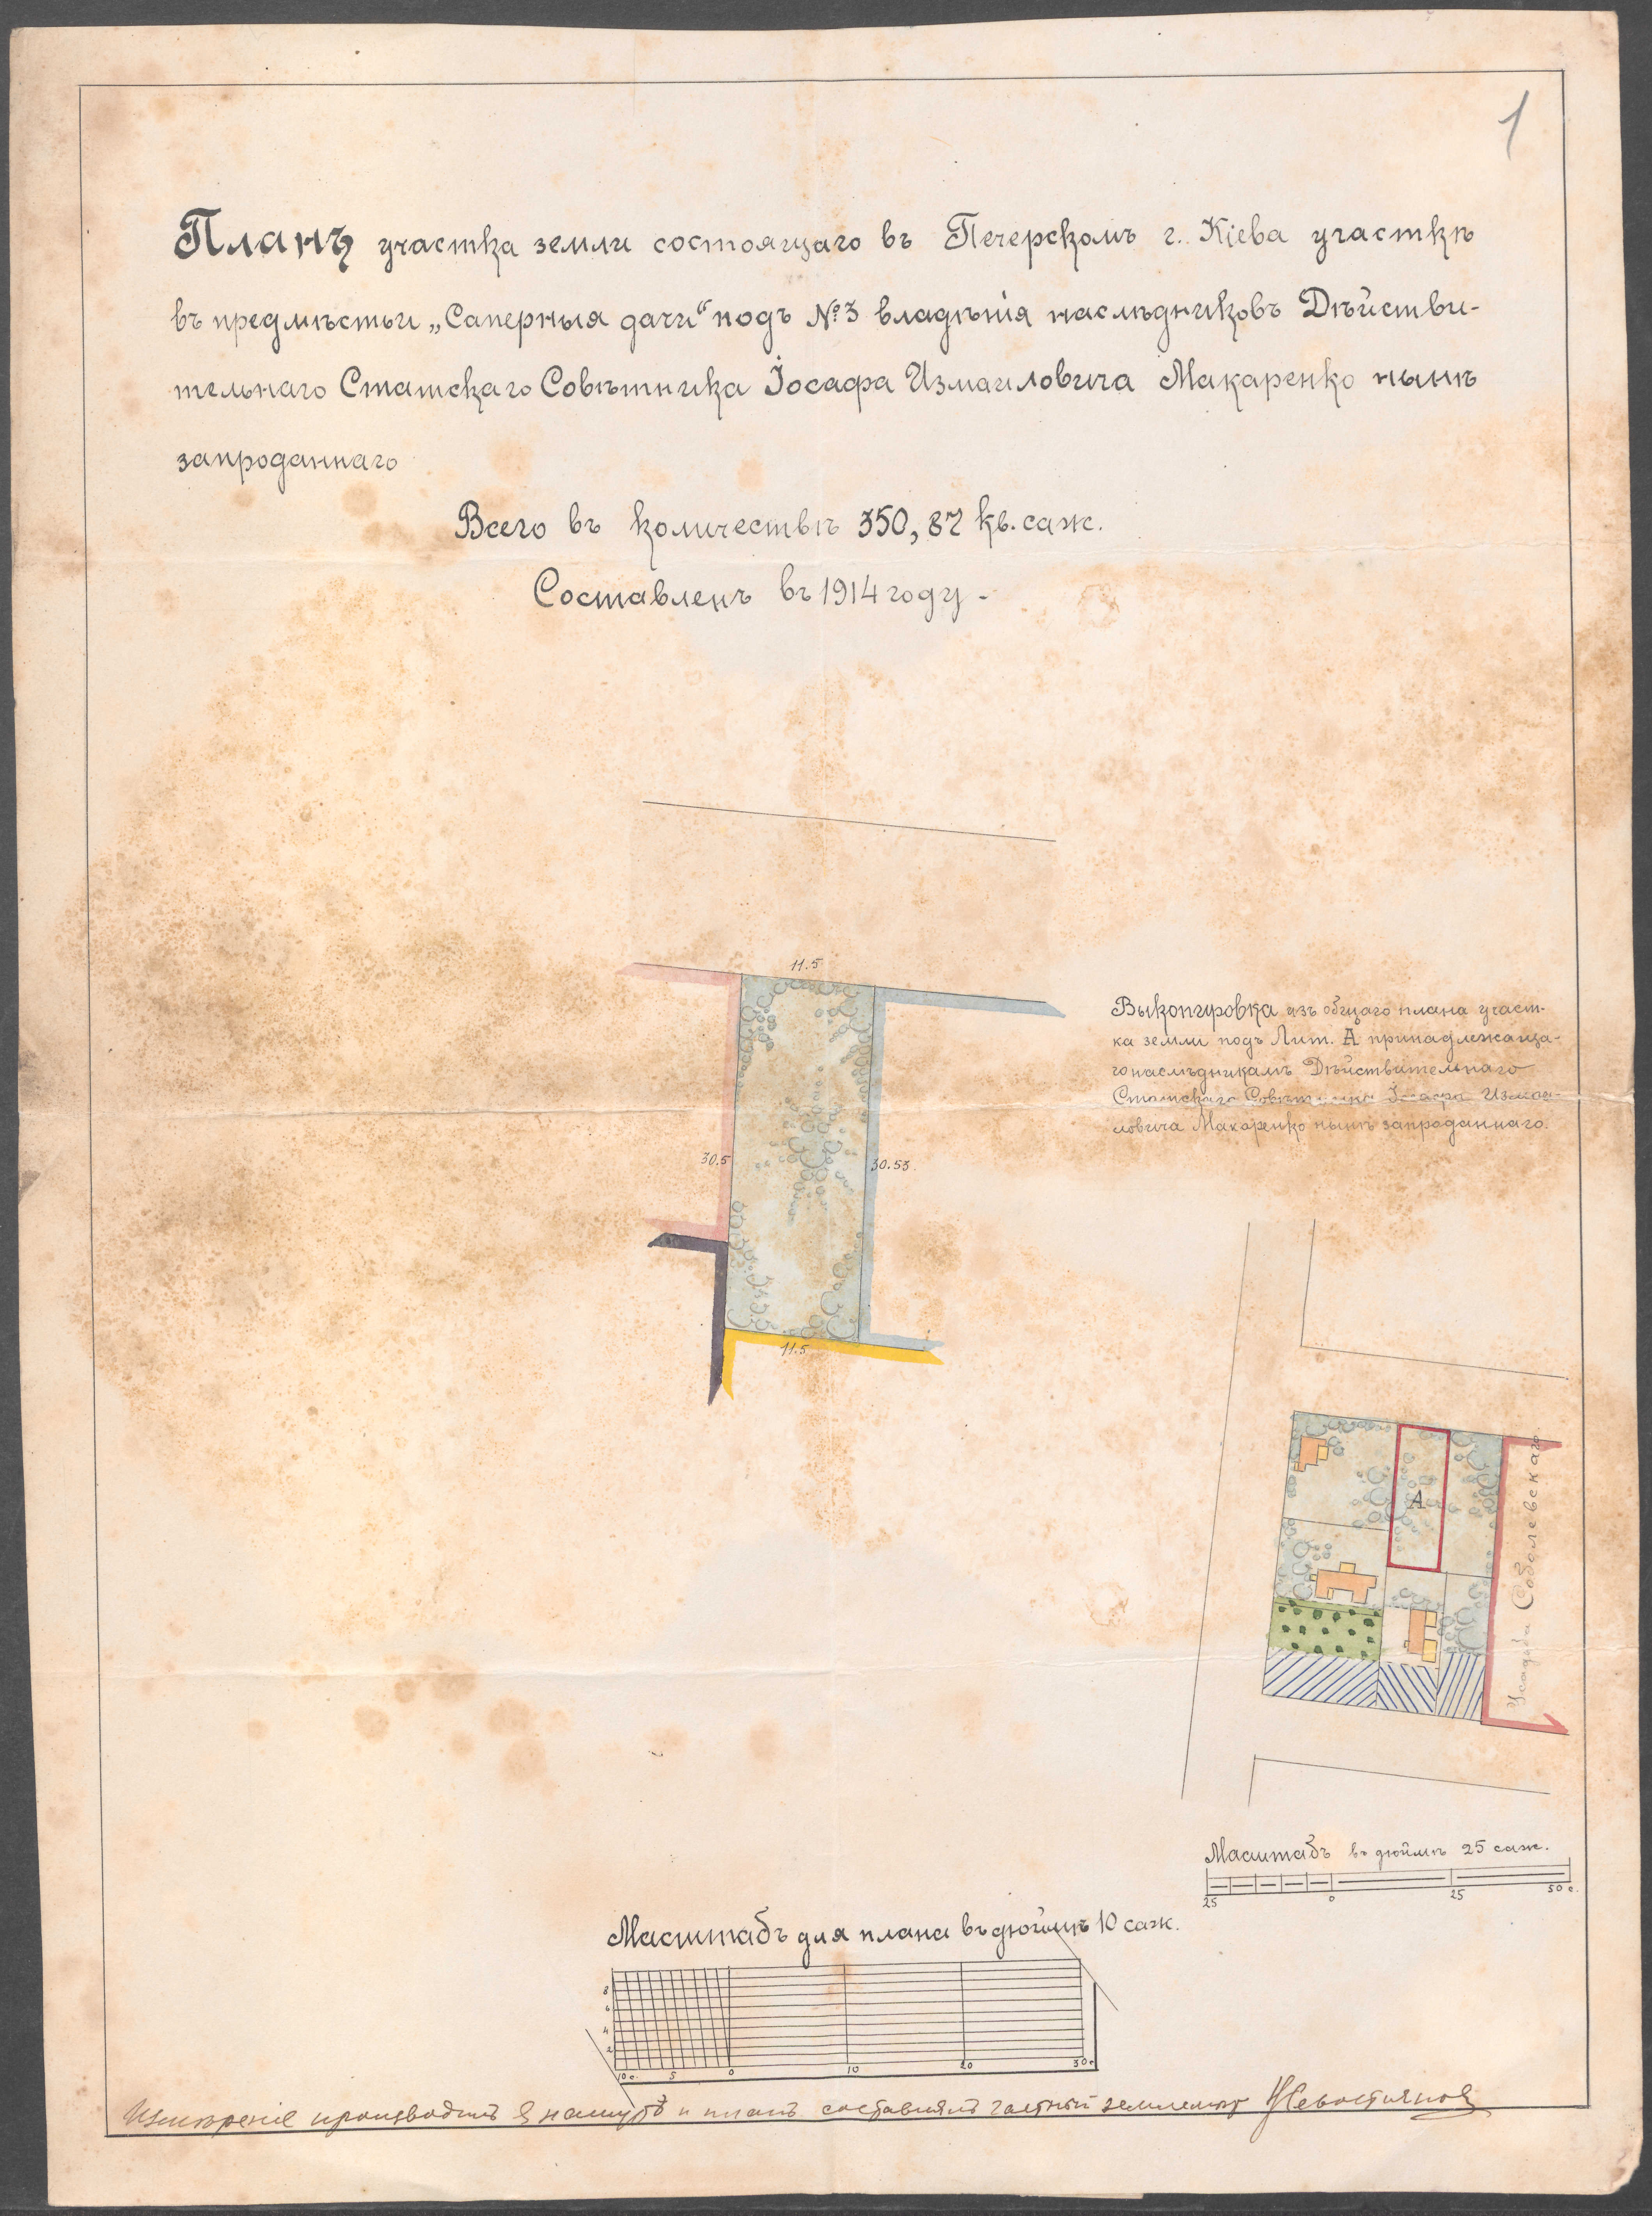 1
Планъ участка земли состоящаго въ Печерскомъ г. Кіева участкѣ
въ предмѣстьи „Саперныя дачи“ подъ №3 владѣнія наслѣдниковъ Дѣйстви-
тельнаго Статскаго Совѣтника Іосафа Измаиловича Макаренко нынѣ
запроданнаго
Всего въ количествѣ 350,87 кв. саж.
Составленъ въ 1914 году.
11.5
30.5
30.53.
11.5
Выкопировка изъ общаго плана участ-
ка земли подъ Лит. А принадлежаща-
го наслѣдникамъ Дѣйствительнаго
Статскаго Совѣтника Іосафа Измаи-
ловича Макаренко нынѣ запроданнаго.
А
Усадьба Соболевскаго
Масштабъ въ дюймѣ 25 саж.
25 0 25 50 с.
Масштабъ для плана въ дюймѣ 10 саж.
8
6
4
2
10 с. 5 0 10 20 30 с
Измѣреніе производилъ въ натурѣ и планъ составлялъ частный землемѣръ Севостьянов